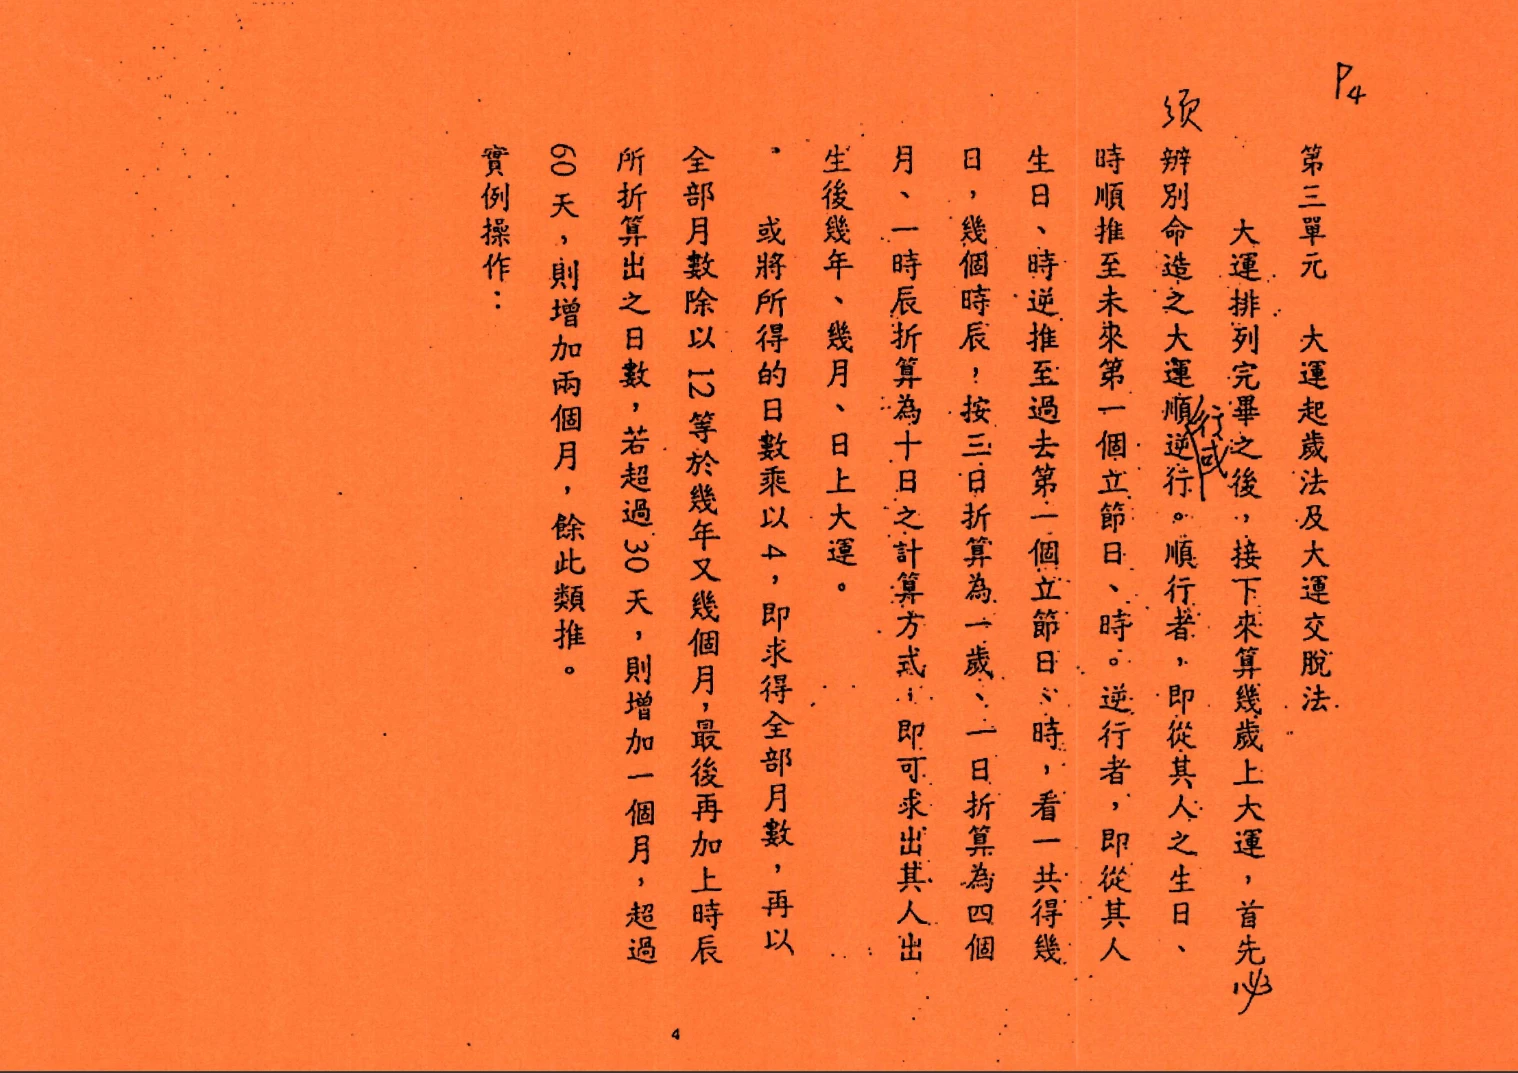 P4
第三單元　大運起歲法及大運交脫法
大運排列完畢之後，接下來算幾歲上大運，首先必
須辨別命造之大運順行或逆行。順行者，即從其人之生日、
時順推至未來第一個立節日、時。逆行者，即從其人
生日、時逆推至過去第一個立節日、時，看一共得幾
日，幾個時辰，按三日折算為一歲、一日折算為四個
月、一時辰折算為十日之計算方式，即可求出其人出
生後幾年、幾月、日上大運。
或將所得的日數乘以4，即求得全部月數，再以
全部月數除以12等於幾年又幾個月，最後再加上時辰
所折算出之日數，若超過30天，則增加一個月，超過
60天，則增加兩個月，餘此類推。
實例操作：
4